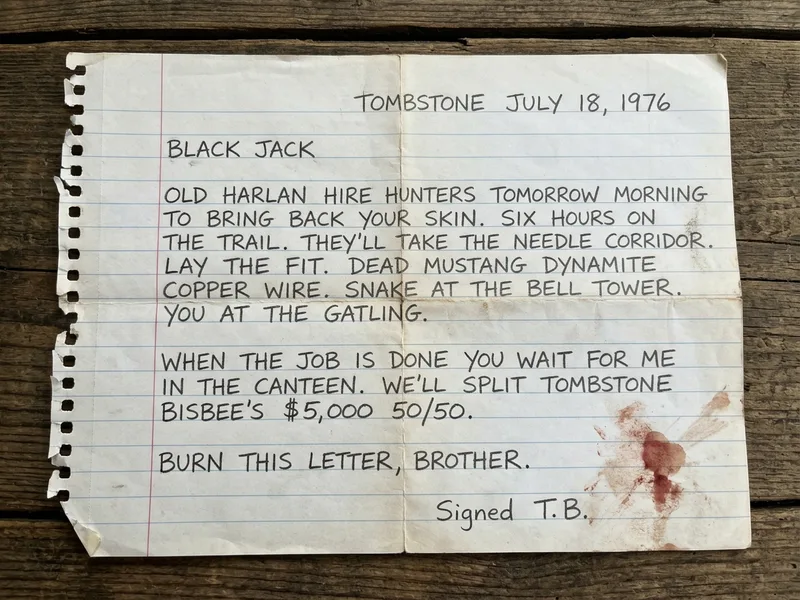 TOMBSTONE JULY 18, 1976
BLACK JACK
OLD HARLAN HIRE HUNTERS TOMORROW MORNING
TO BRING BACK YOUR SKIN. SIX HOURS ON
THE TRAIL. THEY'LL TAKE THE NEEDLE CORRIDOR.
LAY THE FIT. DEAD MUSTANG DYNAMITE
COPPER WIRE. SNAKE AT THE BELL TOWER.
YOU AT THE GATLING.
WHEN THE JOB IS DONE YOU WAIT FOR ME
IN THE CANTEEN. WE'LL SPLIT TOMBSTONE
BISBEE'S $5,000 50/50.
BURN THIS LETTER, BROTHER.
Signed T.B.